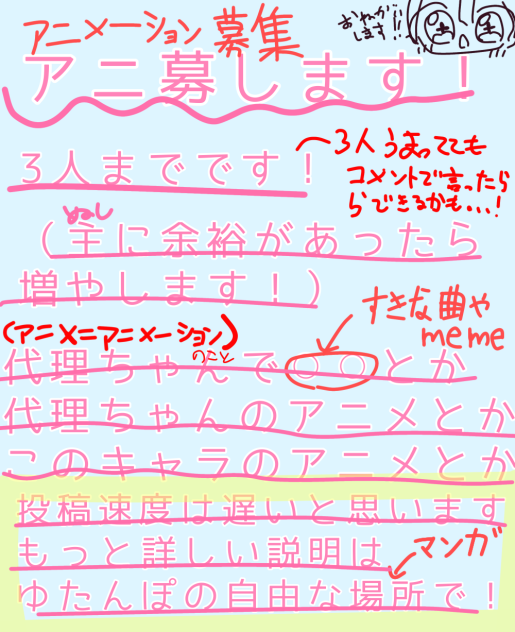 アニメーション募集
おねがい
します!!
アニ募します！
3人までです！
3人うまってても
コメントで言ったら
らできるかも...!
ぬし
(主に余裕があったら
増やします！)
すきな曲や
meme
(アニメ=アニメーション)
のこと
代理ちゃんで○○とか
代理ちゃんのアニメとか
このキャラのアニメとか
投稿速度は遅いと思います
もっと詳しい説明は
マンガ
ゆたんぽの自由な場所で！